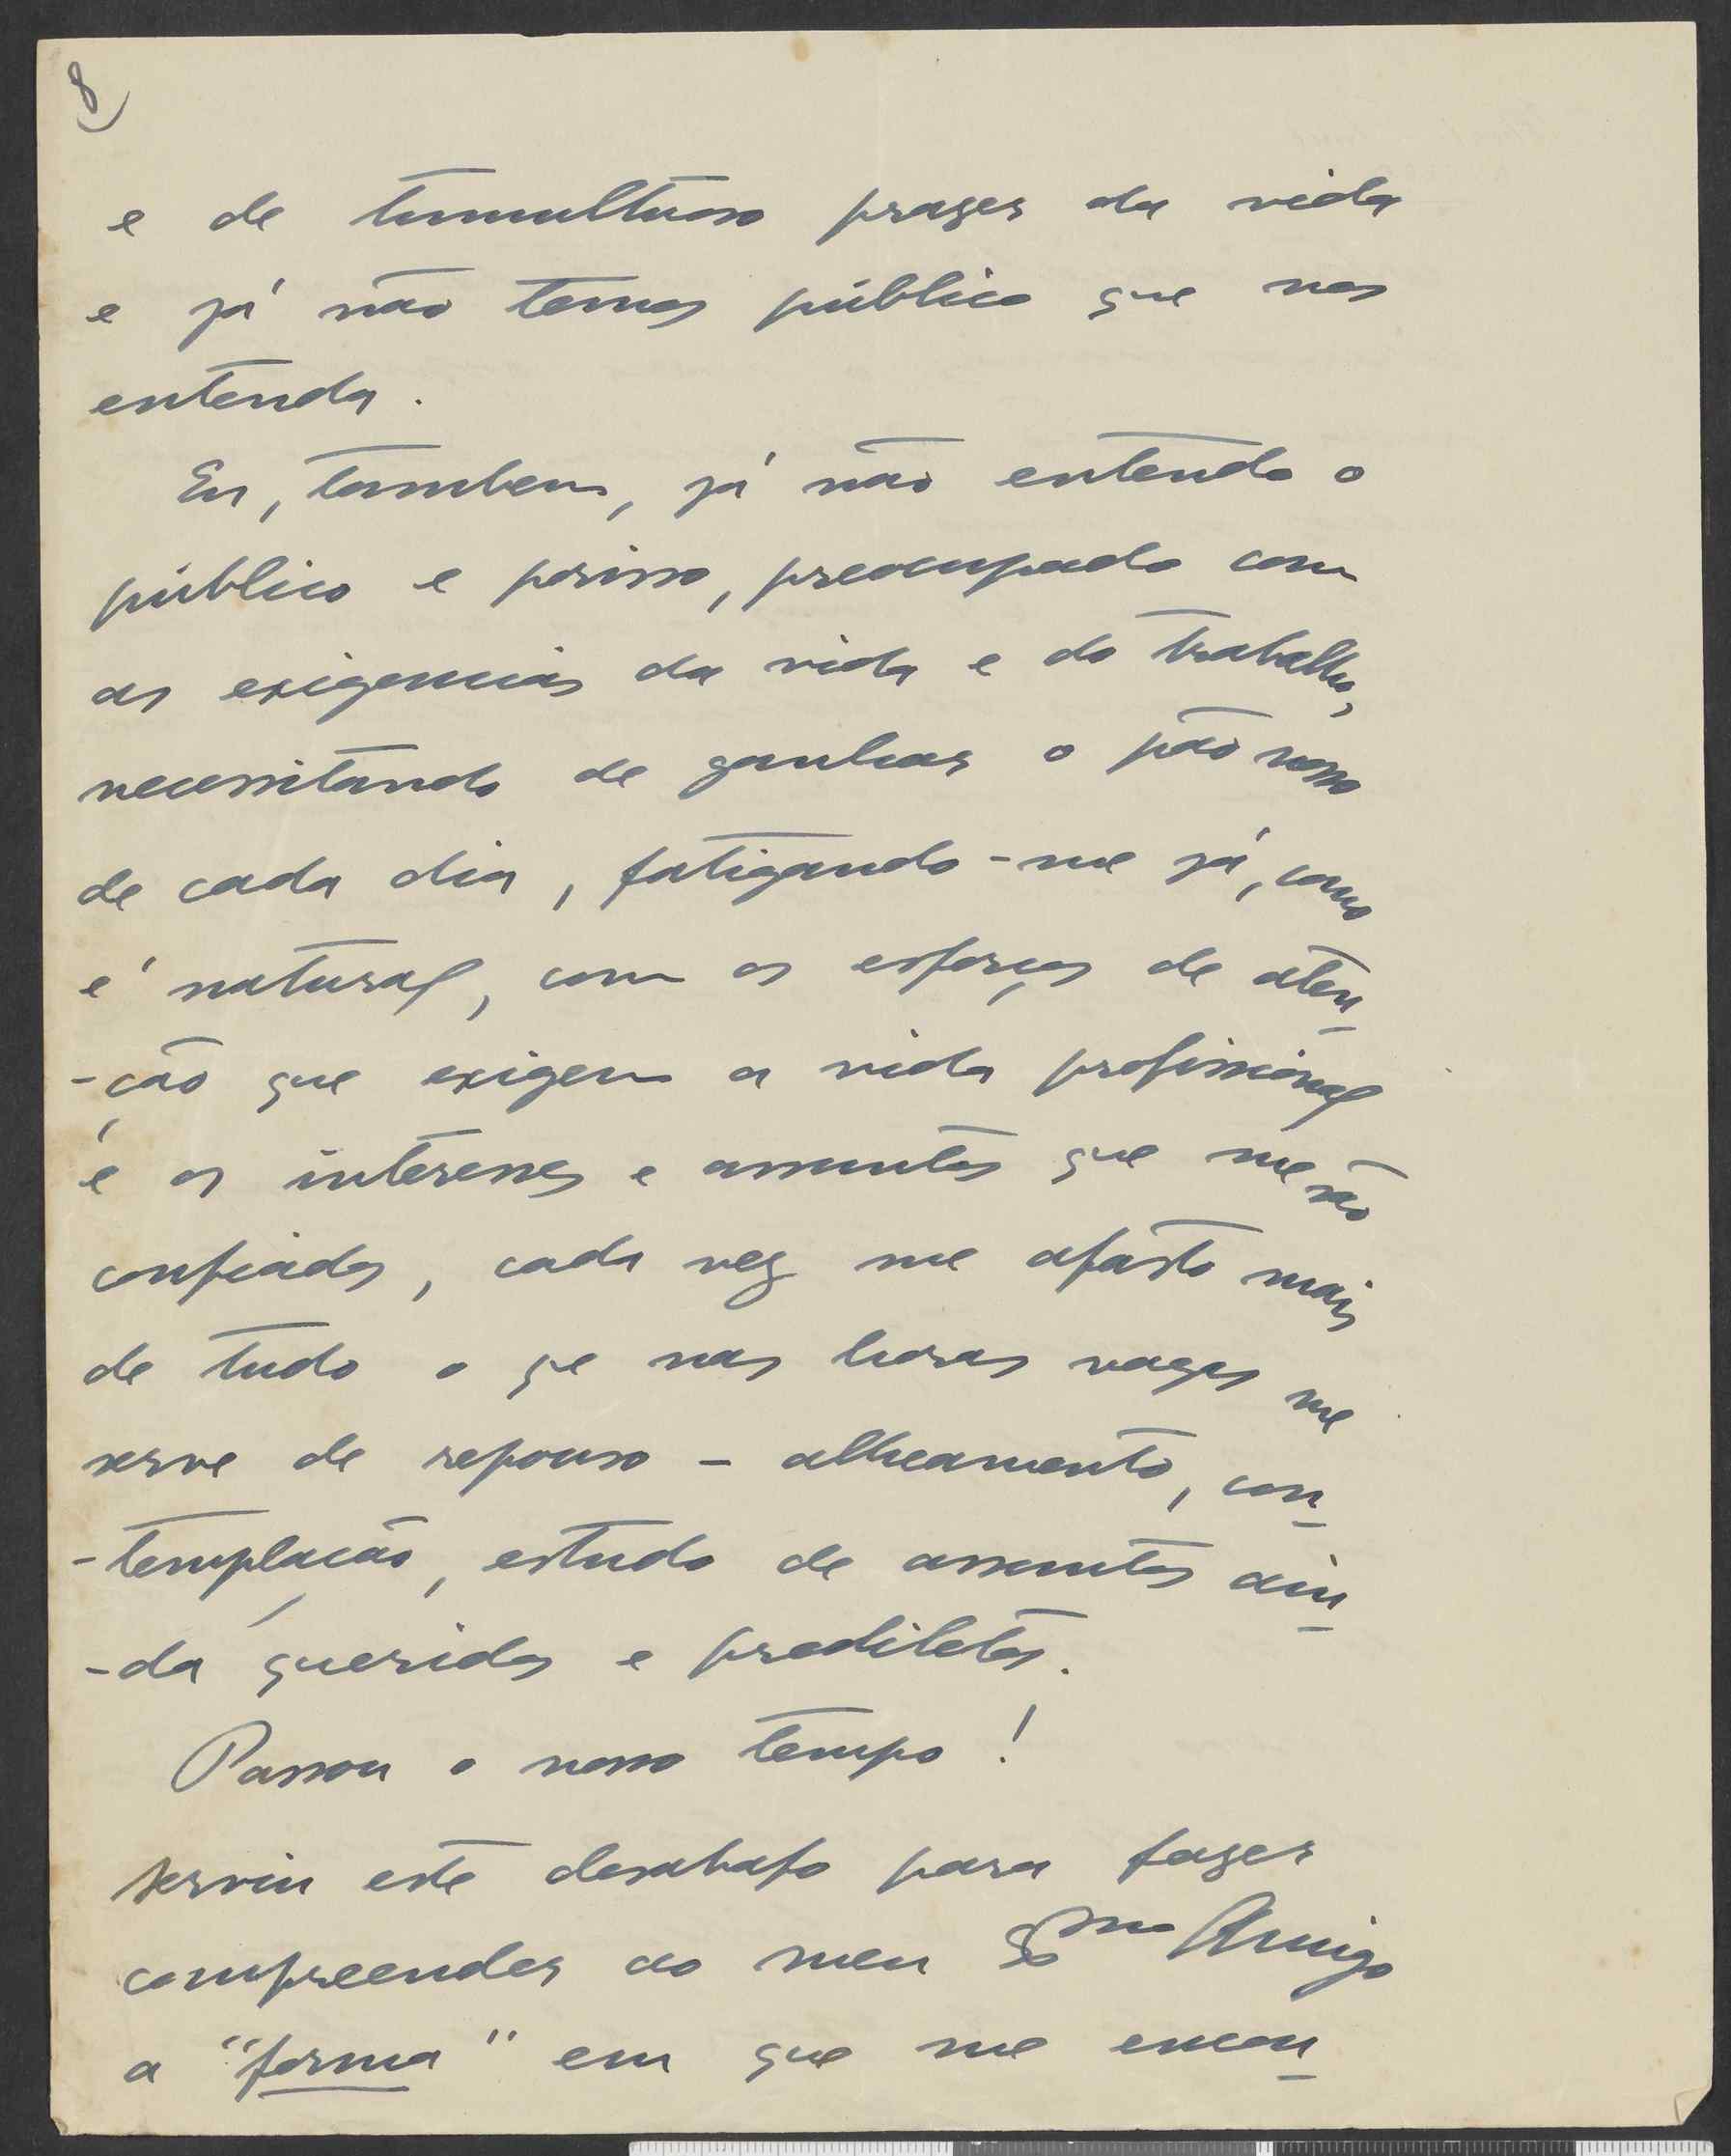 8)
e de tumultuoso prazer da vida
e já não temos público que nos
entenda.
Eu, tambem, já não entendo o
público e porisso, preocupado com
as exigencias da vida e do trabalho,
necessitando de ganhar o pão nosso
de cada dia, fatigando-me já, como
é natural, com os esforços de aten-
-ção que exigem a vida profissional
e os interesses e assuntos que me são
confiados, cada vez me afasto mais
de tudo o qe nas horas vagas me
serve de repouso - alheamento, con-
-templação, estudo de assuntos ain-
-da queridos e prediletos.
Passou o nosso tempo!
Serviu este desabafo para fazer
compreender ao meu Exmo Amigo
a "forma" em que me encon-